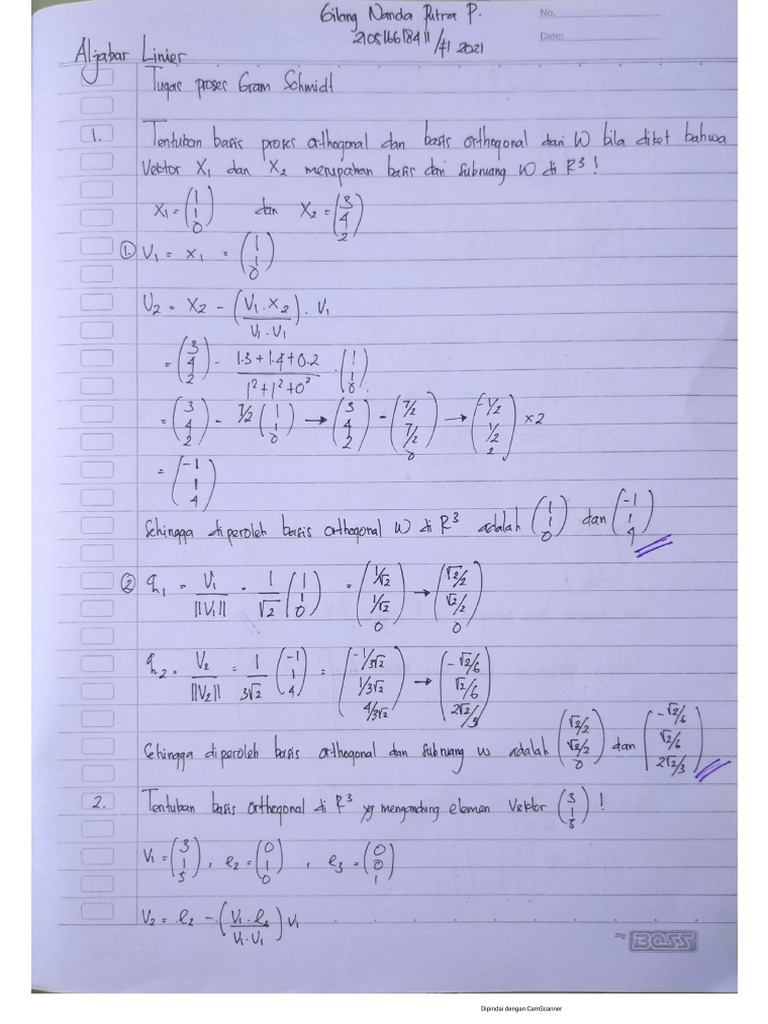 Gilang Nanda Putra P.
No.
Date:
/TI 2021
Aljabar Linier
Tugas proses Gram Schmidt
1. Tentukan basis proses orthogonal dan basis orthogonal dari W bila diket bahwa
Vektor X₁ dan X₂ merupakan basis dari subruang W di R³ !
X₁ = (1 1 0) dan X₂ = (3 4 2)
① V₁ = x₁ = (1 1 0)
U₂ = X₂ - (V₁.X₂ / V₁.V₁) . V₁
= (3 4 2) - (1.3+1.4+0.2 / 1²+1²+0²) . (1 1 0)
= (3 4 2) - 7/2 (1 1 0) → (3 4 2) - (7/2 7/2 0) → (-1/2 1/2 2) × 2
= (-1 1 4)
Sehingga diperoleh basis orthogonal W di R³ adalah (1 1 0) dan (-1 1 4)
② q₁ = V₁/||V₁|| = 1/√2 (1 1 0) = (1/√2 1/√2 0) → (√2/2 √2/2 0)
q₂ = V₂/||V₂|| = 1/3√2 (-1 1 4) = (-1/3√2 1/3√2 4/3√2) → (-√2/6 √2/6 2√2/3)
Sehingga diperoleh basis orthogonal dan subruang W adalah (√2/2 √2/2 0) dan (-√2/6 √2/6 2√2/3)
2. Tentukan basis orthogonal di R³ yg mengandung elemen Vektor (3 1 5) !
V₁ = (3 1 5) , e₂ = (0 1 0) , e₃ = (0 0 1)
V₂ = e₂ - (V₁.e₂ / V₁.V₁) V₁
BOSS
Dipindai dengan CamScanner